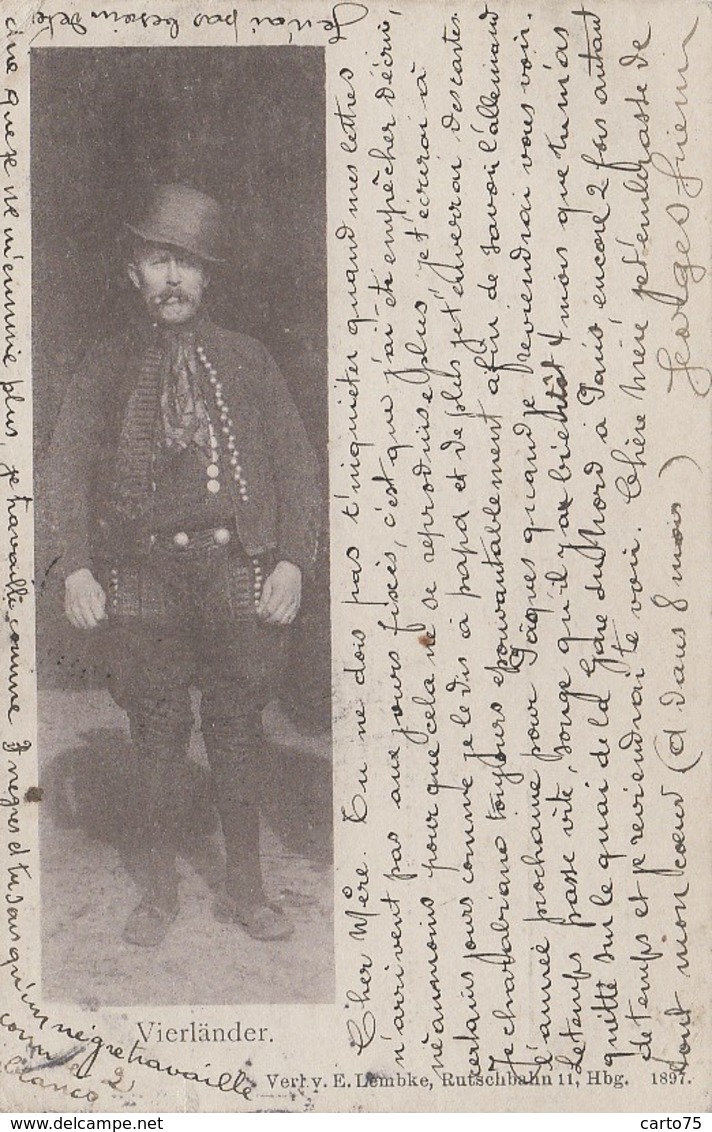 Cher Mère. Tu ne dois pas t'inquieter quand mes lettres
n'arrivent pas aux jours fixés, c'est que j'ai été empêcher d'écrire,
néanmoins pour que cela ne se reproduise plus, je t'écrirai à
certains jours comme je le dis à papa et de plus je t'enverrai des cartes.
Je charabiane toujours epouvantablement afin de savoir l'allemand
l'année prochaine pour Pâques quand je reviendrai vous voir.
Le temps passe vite, songe qu'il y a bientôt 4 mois que tu m'as
quitté sur le quai de la Gare du Nord à Paris, encore 2 fois autant
de temps et je reviendrai te voir. Chère Mère je t'embrasse de
tout mon coeur (à dans 8 mois)
Georges
Je n'ai pas besoin de te
que je ne m'ennuie plus, je travaille comme 2 negres et tu sais qu'un
négre travaille
comme 2
blancs
Vierländer.
Verl. v. E. Lembke, Rutschbahn 11, Hbg. 1897.
carto75